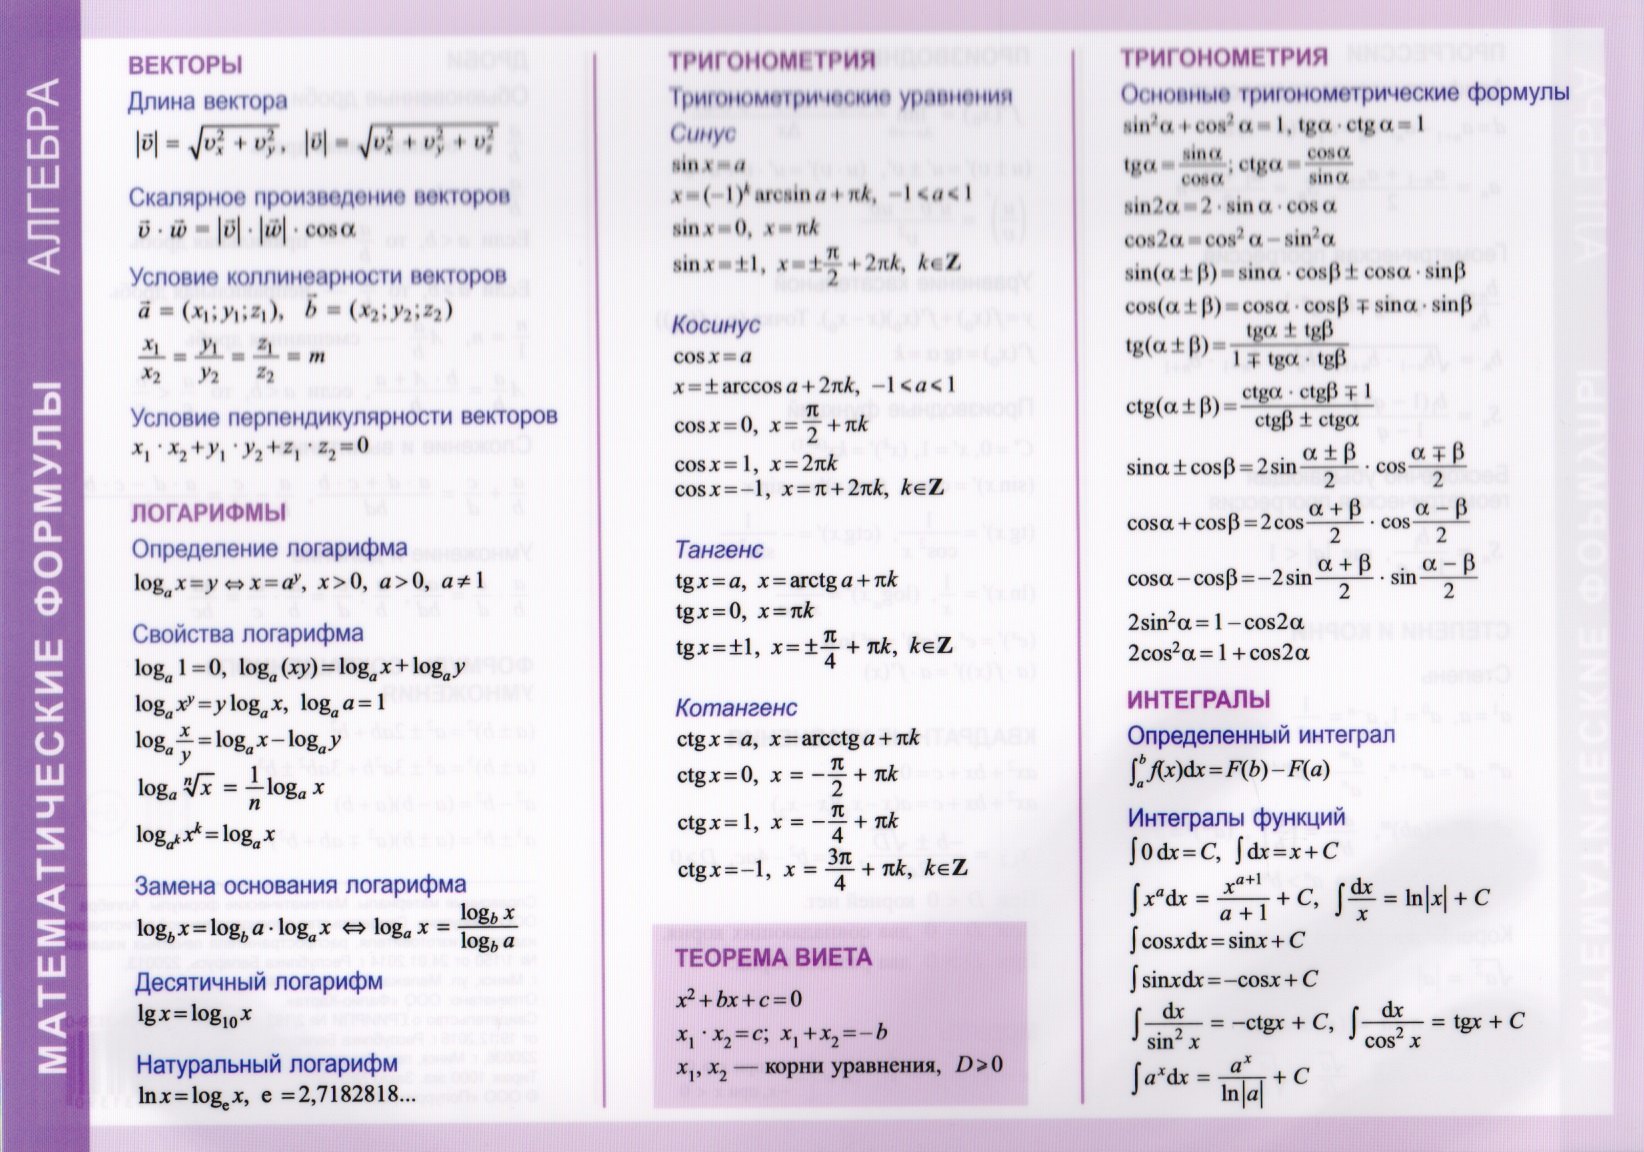 МАТЕМАТИЧЕСКИЕ ФОРМУЛЫ АЛГЕБРА
ВЕКТОРЫ
Длина вектора
|v⃗| = √(vₓ² + v_y²), |v⃗| = √(vₓ² + v_y² + v_z²)
Скалярное произведение векторов
v⃗ · w⃗ = |v⃗| · |w⃗| · cos α
Условие коллинеарности векторов
a⃗ = (x₁; y₁; z₁), b⃗ = (x₂; y₂; z₂)
x₁/x₂ = y₁/y₂ = z₁/z₂ = m
Условие перпендикулярности векторов
x₁ · x₂ + y₁ · y₂ + z₁ · z₂ = 0
ЛОГАРИФМЫ
Определение логарифма
logₐ x = y ⇔ x = a^y, x > 0, a > 0, a ≠ 1
Свойства логарифма
logₐ 1 = 0, logₐ (xy) = logₐ x + logₐ y
logₐ x^y = y logₐ x, logₐ a = 1
logₐ x/y = logₐ x − logₐ y
logₐ ⁿ√x = 1/n logₐ x
log_{a^k} x^k = logₐ x
Замена основания логарифма
log_b x = log_b a · logₐ x ⇔ logₐ x = log_b x / log_b a
Десятичный логарифм
lg x = log₁₀ x
Натуральный логарифм
ln x = logₑ x, e = 2,7182818...
ТРИГОНОМЕТРИЯ
Тригонометрические уравнения
Синус
sin x = a
x = (−1)^k arcsin a + πk, −1 < a < 1
sin x = 0, x = πk
sin x = ±1, x = ± π/2 + 2πk, k∈Z
Косинус
cos x = a
x = ± arccos a + 2πk, −1 < a < 1
cos x = 0, x = π/2 + πk
cos x = 1, x = 2πk
cos x = −1, x = π + 2πk, k∈Z
Тангенс
tg x = a, x = arctg a + πk
tg x = 0, x = πk
tg x = ±1, x = ± π/4 + πk, k∈Z
Котангенс
ctg x = a, x = arcctg a + πk
ctg x = 0, x = − π/2 + πk
ctg x = 1, x = − π/4 + πk
ctg x = −1, x = 3π/4 + πk, k∈Z
ТЕОРЕМА ВИЕТА
x² + bx + c = 0
x₁ · x₂ = c; x₁ + x₂ = −b
x₁, x₂ — корни уравнения, D ⩾ 0
ТРИГОНОМЕТРИЯ
Основные тригонометрические формулы
sin²α + cos²α = 1, tgα · ctgα = 1
tgα = sinα/cosα; ctgα = cosα/sinα
sin2α = 2 · sinα · cosα
cos2α = cos²α − sin²α
sin(α ± β) = sinα · cosβ ± cosα · sinβ
cos(α ± β) = cosα · cosβ ∓ sinα · sinβ
tg(α ± β) = (tgα ± tgβ)/(1 ∓ tgα · tgβ)
ctg(α ± β) = (ctgα · ctgβ ∓ 1)/(ctgβ ± ctgα)
sinα ± cosβ = 2sin (α ± β)/2 · cos (α ∓ β)/2
cosα + cosβ = 2cos (α + β)/2 · cos (α − β)/2
cosα − cosβ = −2sin (α + β)/2 · sin (α − β)/2
2sin²α = 1 − cos2α
2cos²α = 1 + cos2α
ИНТЕГРАЛЫ
Определенный интеграл
∫ₐᵇ f(x)dx = F(b) − F(a)
Интегралы функций
∫0 dx = C, ∫dx = x + C
∫x^a dx = x^(a+1)/(a + 1) + C, ∫dx/x = ln|x| + C
∫cosxdx = sinx + C
∫sinxdx = −cosx + C
∫dx/sin² x = −ctgx + C, ∫dx/cos² x = tgx + C
∫a^x dx = a^x/ln|a| + C